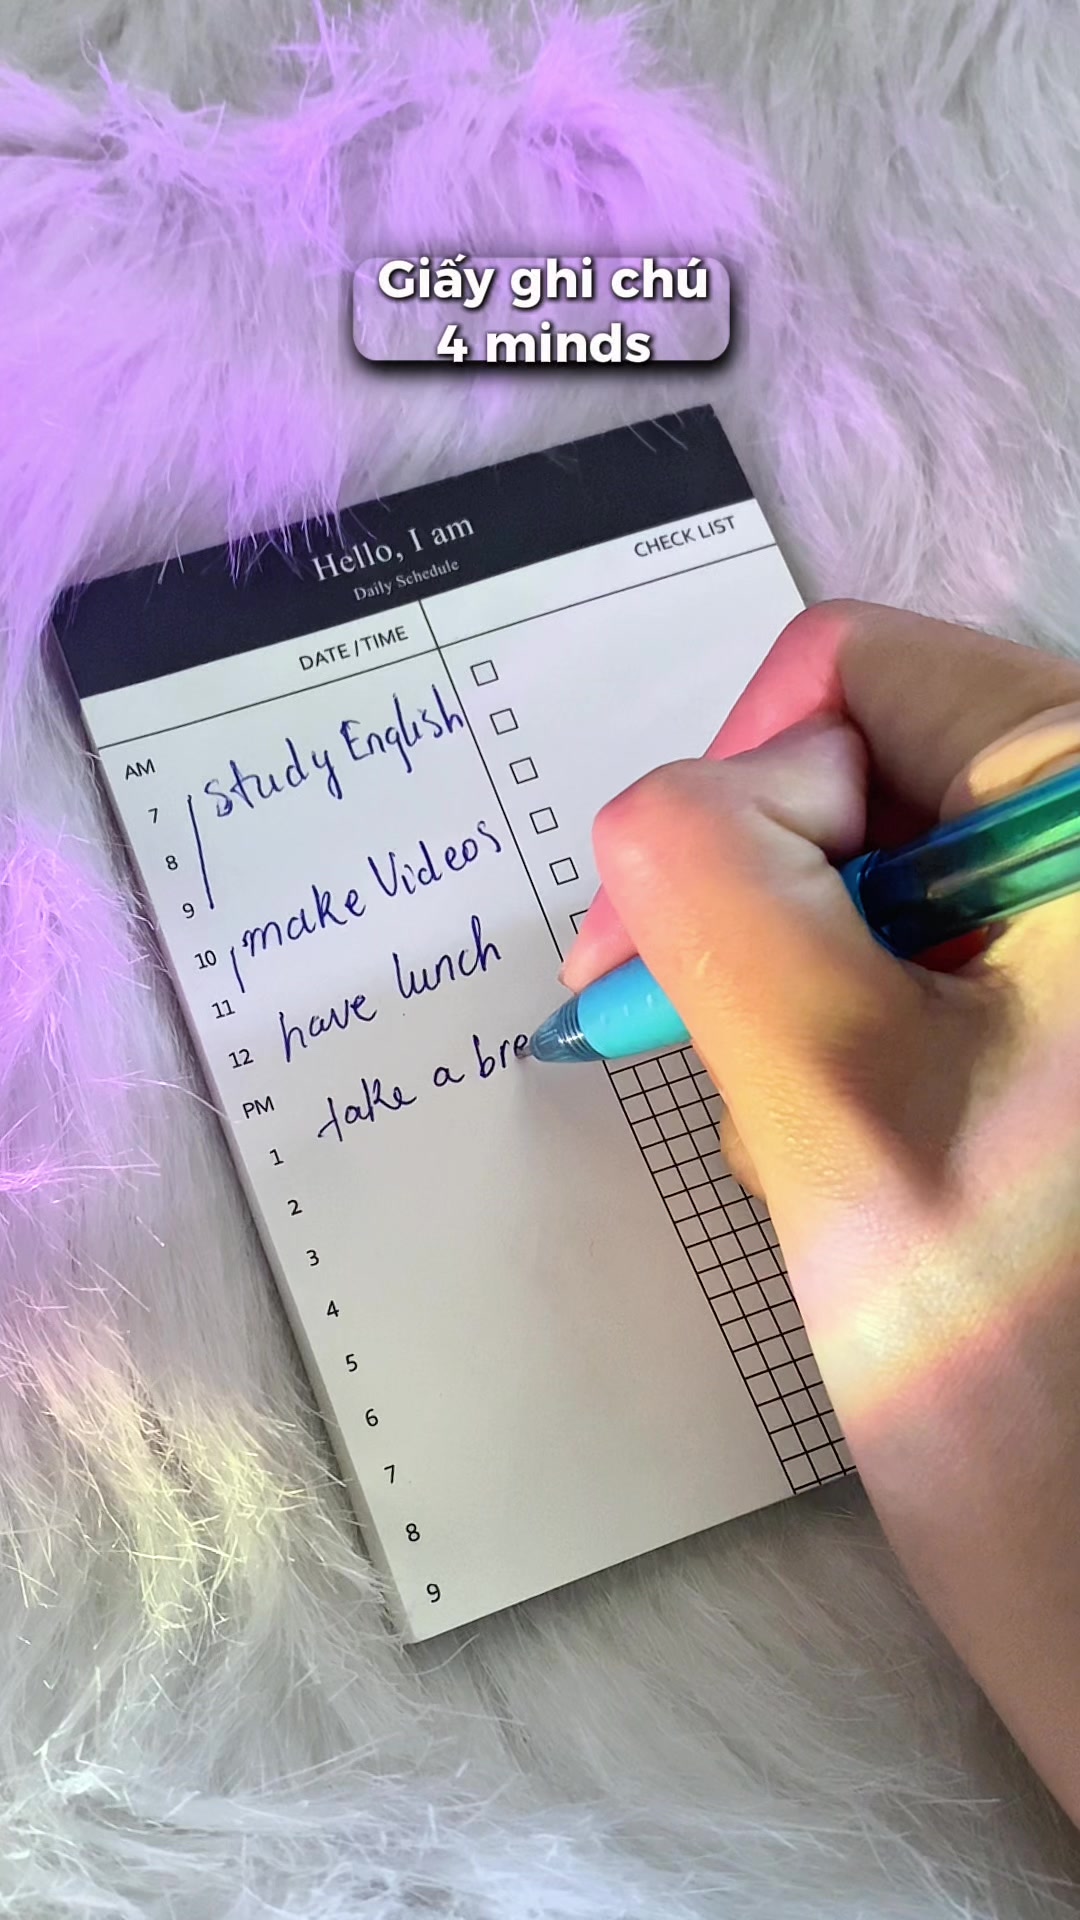 Giấy ghi chú
4 minds
Hello, I am
Daily Schedule
DATE/TIME
CHECK LIST
AM
study English
7
8
9
make Videos
10
11
have lunch
12
PM
take a bre
1
2
3
4
5
6
7
8
9